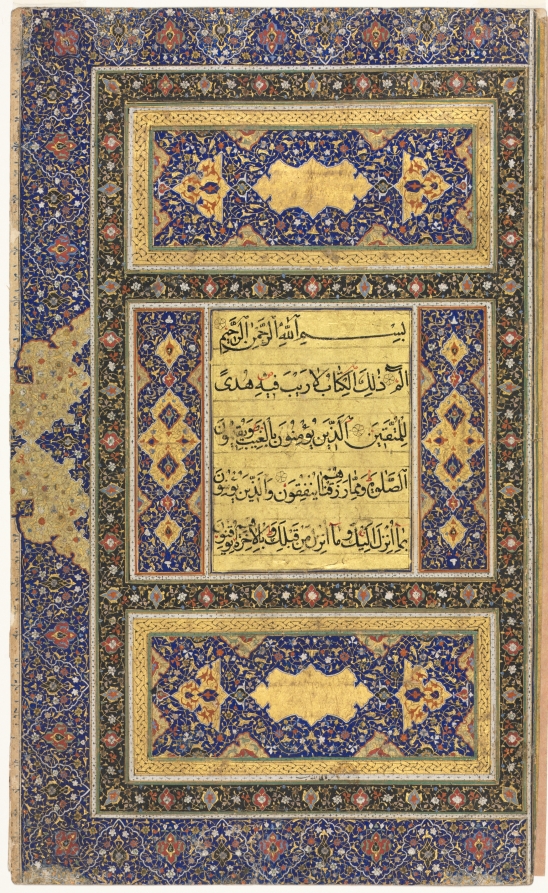 بِسْمِ اللَّهِ الرَّحْمَنِ الرَّحِيمِ
الٓمٓ ذَلِكَ الْكِتَابُ لَا رَيْبَ فِيهِ هُدًى
لِلْمُتَّقِينَ الَّذِينَ يُؤْمِنُونَ بِالْغَيْبِ وَيُقِيمُونَ
الصَّلَوةَ وَمِمَّا رَزَقْنَاهُمْ يُنْفِقُونَ وَالَّذِينَ يُؤْمِنُونَ
بِمَا أُنْزِلَ إِلَيْكَ وَمَا أُنْزِلَ مِنْ قَبْلِكَ وَبِالْآخِرَةِ هُمْ يُوقِنُونَ